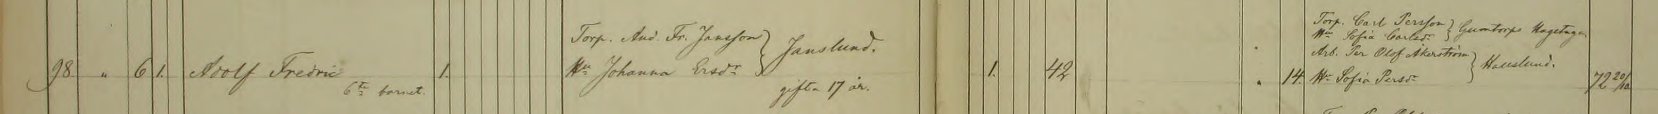 98 " 6 1. Adolf Fredric 1.
6te barnet.
Torp. And. Fr. Jansson
Hu Johanna Ersdr } Janslund.
gifta 17 år.
1. 42
" 14
Torp. Carl Persson
Hu Sofia Carlsdr } Gumtorps
Arb. Per Olof Åkerström
Hu Sofia Persdr
72 20/10